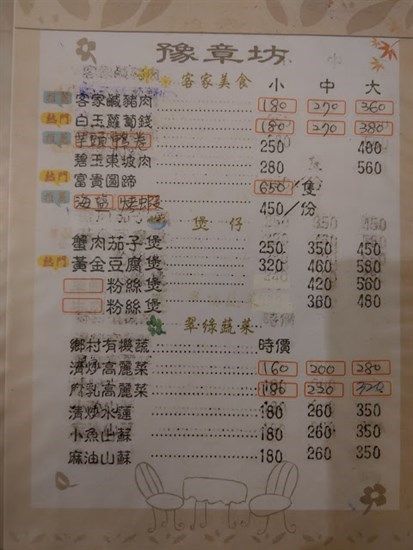 豫章坊
客家美食 小 中 大
客家鹹豬肉 180 270 360
熱門 白玉蘿蔔錢 180 270 380
芋頭鴨卷 250 400
碧玉東坡肉 280 560
熱門 富貴圓蹄 650/隻
海苔 蝦 450/份
煲仔
蟹肉茄子煲 250 350 450
熱門 黃金豆腐煲 320 460 580
粉絲煲 420 560
粉絲煲 360 480
翠綠蔬菜
鄉村有機蔬 時價
清炒高麗菜 160 200 280
腐乳高麗菜 180 220 320
清炒水蓮 180 260 350
小魚山蘇 180 260 350
麻油山蘇 180 260 350